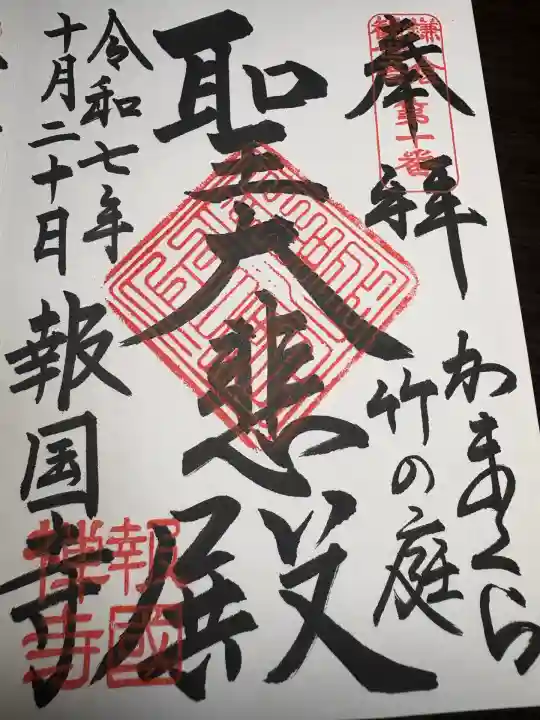 奉拝
鎌倉第十番
かまくら
竹の庭
聖大悲殿
令和七年
十月二十日
報国寺
報國
禪寺